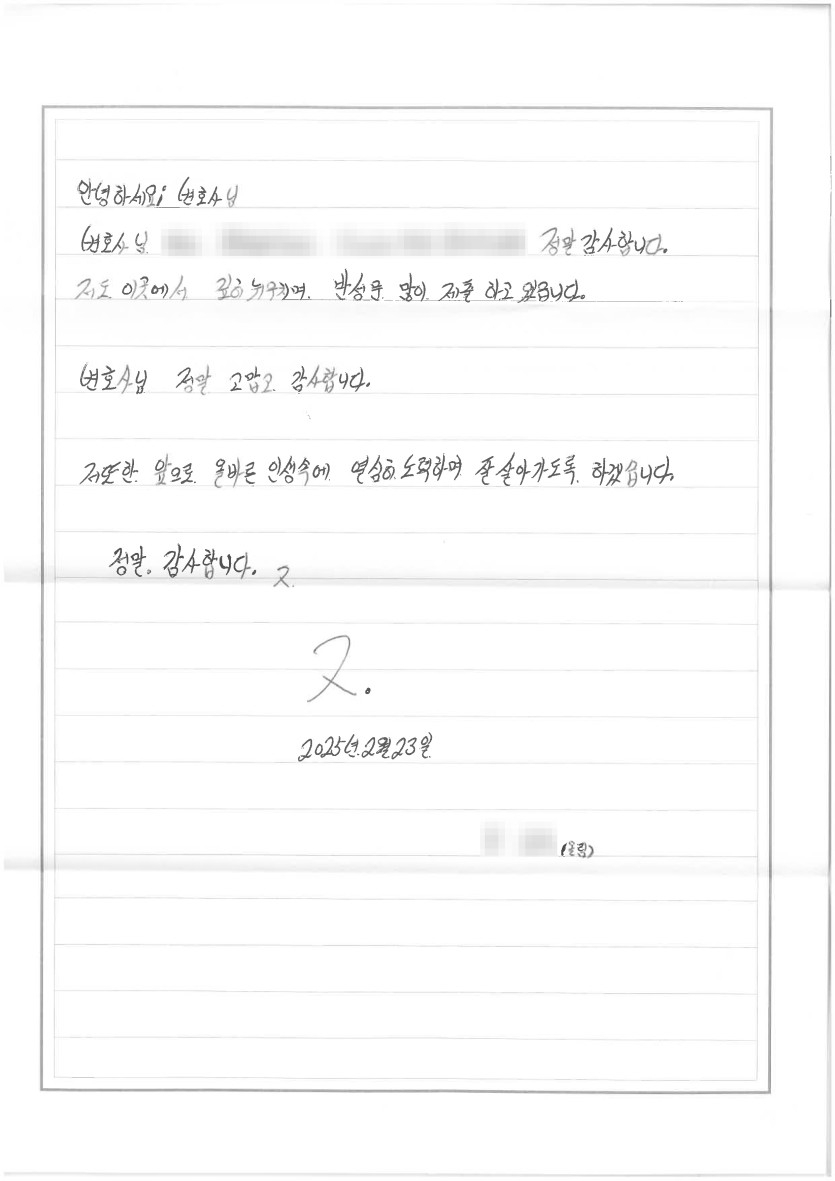 안녕하세요; 변호사님
변호사님 정말 감사합니다.
저도 이곳에서 깊히 뉘우치며, 반성문 많이 제출 하고 있읍니다.
변호사님 정말 고맙고 감사합니다.
저또한 앞으로 올바른 인생속에 열심히 노력하며 잘 살아가도록 하겠습니다.
정말. 감사합니다.
2025년.2월23일
(올림)